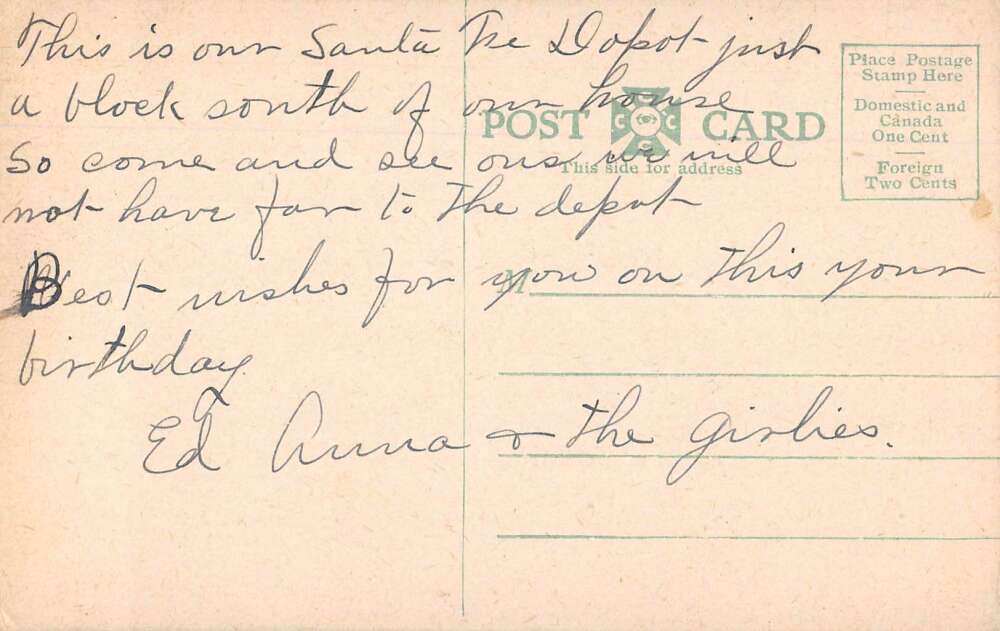 This is our Santa Fe Dopot just
a block south of our house
So come and see ous we will
not have far to the depot
Best wishes for you on this your
birthday
Ed Anna & the girlies.
POST CARD
This side for address
M
Place Postage
Stamp Here
Domestic and
Canada
One Cent
Foreign
Two Cents